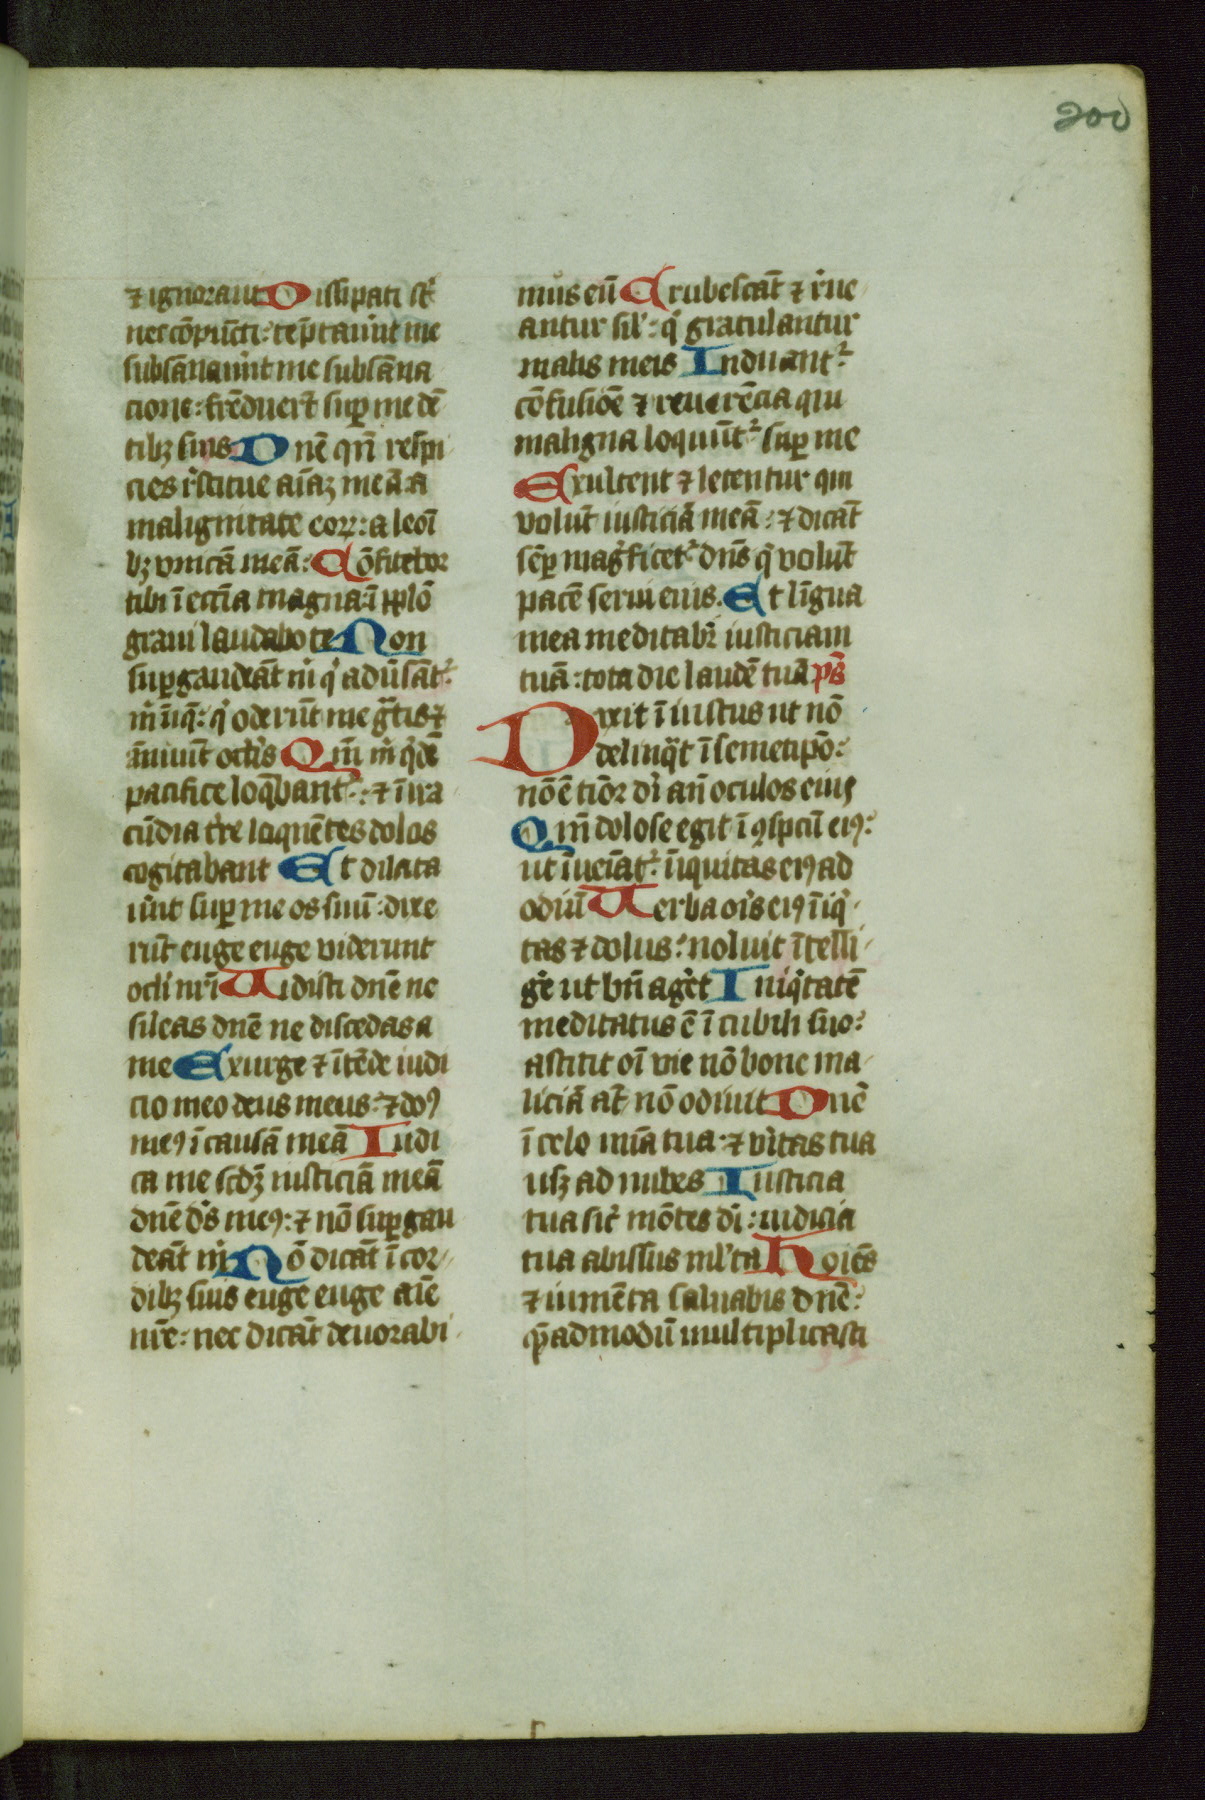 200
⁊ ignoraūt Dissipati st̄
nec cōpūcti: tēptauer̄t me
subsānauer̄t me subsāna
cione: frēduer̄t suꝑ me dē
tibꝫ suis Dn̄e qn̄ respi
cies r̄stitue aīaꝫ meā a
malignitate eoꝝ: a leoī
bꝫ vnicā meā: Cōfitebor
tibi ī ecc̄ia magna: ī pp̄lo
graui laudabo te Non
suꝑgaudeāt m̄ qⁱ adūsāt᷑
m̄ īiq̄: qⁱ oderūt me gͣtis ⁊
ānuūt ocl̄is Qm̄ m̄ qⁱdē
pacifice loq̄bant᷑: ⁊ ī ira
cūdia tr̄e loquētes dolos
cogitabant Et dilata
uer̄t suꝑ me os suū: dixe
rūt euge euge viderunt
ocl̄i nr̄i Uidisti dn̄e ne
sileas dn̄e ne discedas a
me Exurge ⁊ ītēde iudi
cio meo deus meus: ⁊ do᷒
me᷒ ī causā meā Iudi
ca me scd̄ꝫ iusticiā meā
dn̄e ds̄ me᷒: ⁊ nō suꝑgau
deāt m̄ Nō dicāt ī cor
dibꝫ suis euge euge aīe
nr̄e: nec dicāt deuorabi
mus eū Erubescāt ⁊ r̄ue
antur sil̄: qⁱ gratulantur
malis meis Induant᷑
cōfusiōe ⁊ reuerēcia qui
maligna loquūt᷑ suꝑ me
Exultent ⁊ letentur qui
volūt iusticiā meā: ⁊ dicāt
sēꝑ magⁱficet᷑ dn̄s qⁱ volūt
pacē serui eius. Et līgua
mea meditabr̄ iusticiam
tuā: tota die laudē tuā ps̄
Dixit īiustus ut nō
delinqͣt ī semetip̄o:
nō ē tīor di᷑ an̄ oculos eius
Qm̄ dolose egit ī ꝯspcū ei᷒:
ut īueīat᷑ īiquitas ei᷒ ad
odiū Uerba or̄is ei᷒ īiqⁱ
tas ⁊ dolus: noluit ītelli
ger̄e ut bn̄ ager̄et Iniqⁱtatē
meditatus ē ī cubili suo:
astitit oī vie nō bone ma
liciā at̄ nō odiuit Dn̄e
ī celo mīa tua: ⁊ v̄itas tua
usꝫ ad nubes Iusticia
tua sic̄ mōtes di᷑: iudicia
tua abissus ml̄ta Hoīes
⁊ iumēta saluabis dn̄e:
qͣ̄admodū multiplicasti